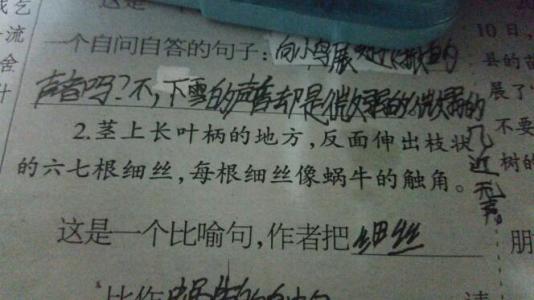 这是
一个自问自答的句子:向小鸟展
声音吗?不,下雪的声音却是微弱的微弱的
几近无声。
2.茎上长叶柄的地方,反面伸出枝状
的六七根细丝,每根细丝像蜗牛的触角。
这是一个比喻句,作者把细丝
比作蜗牛的触角
10日,
县的
展了
不要
树的
朋
请
流
舍